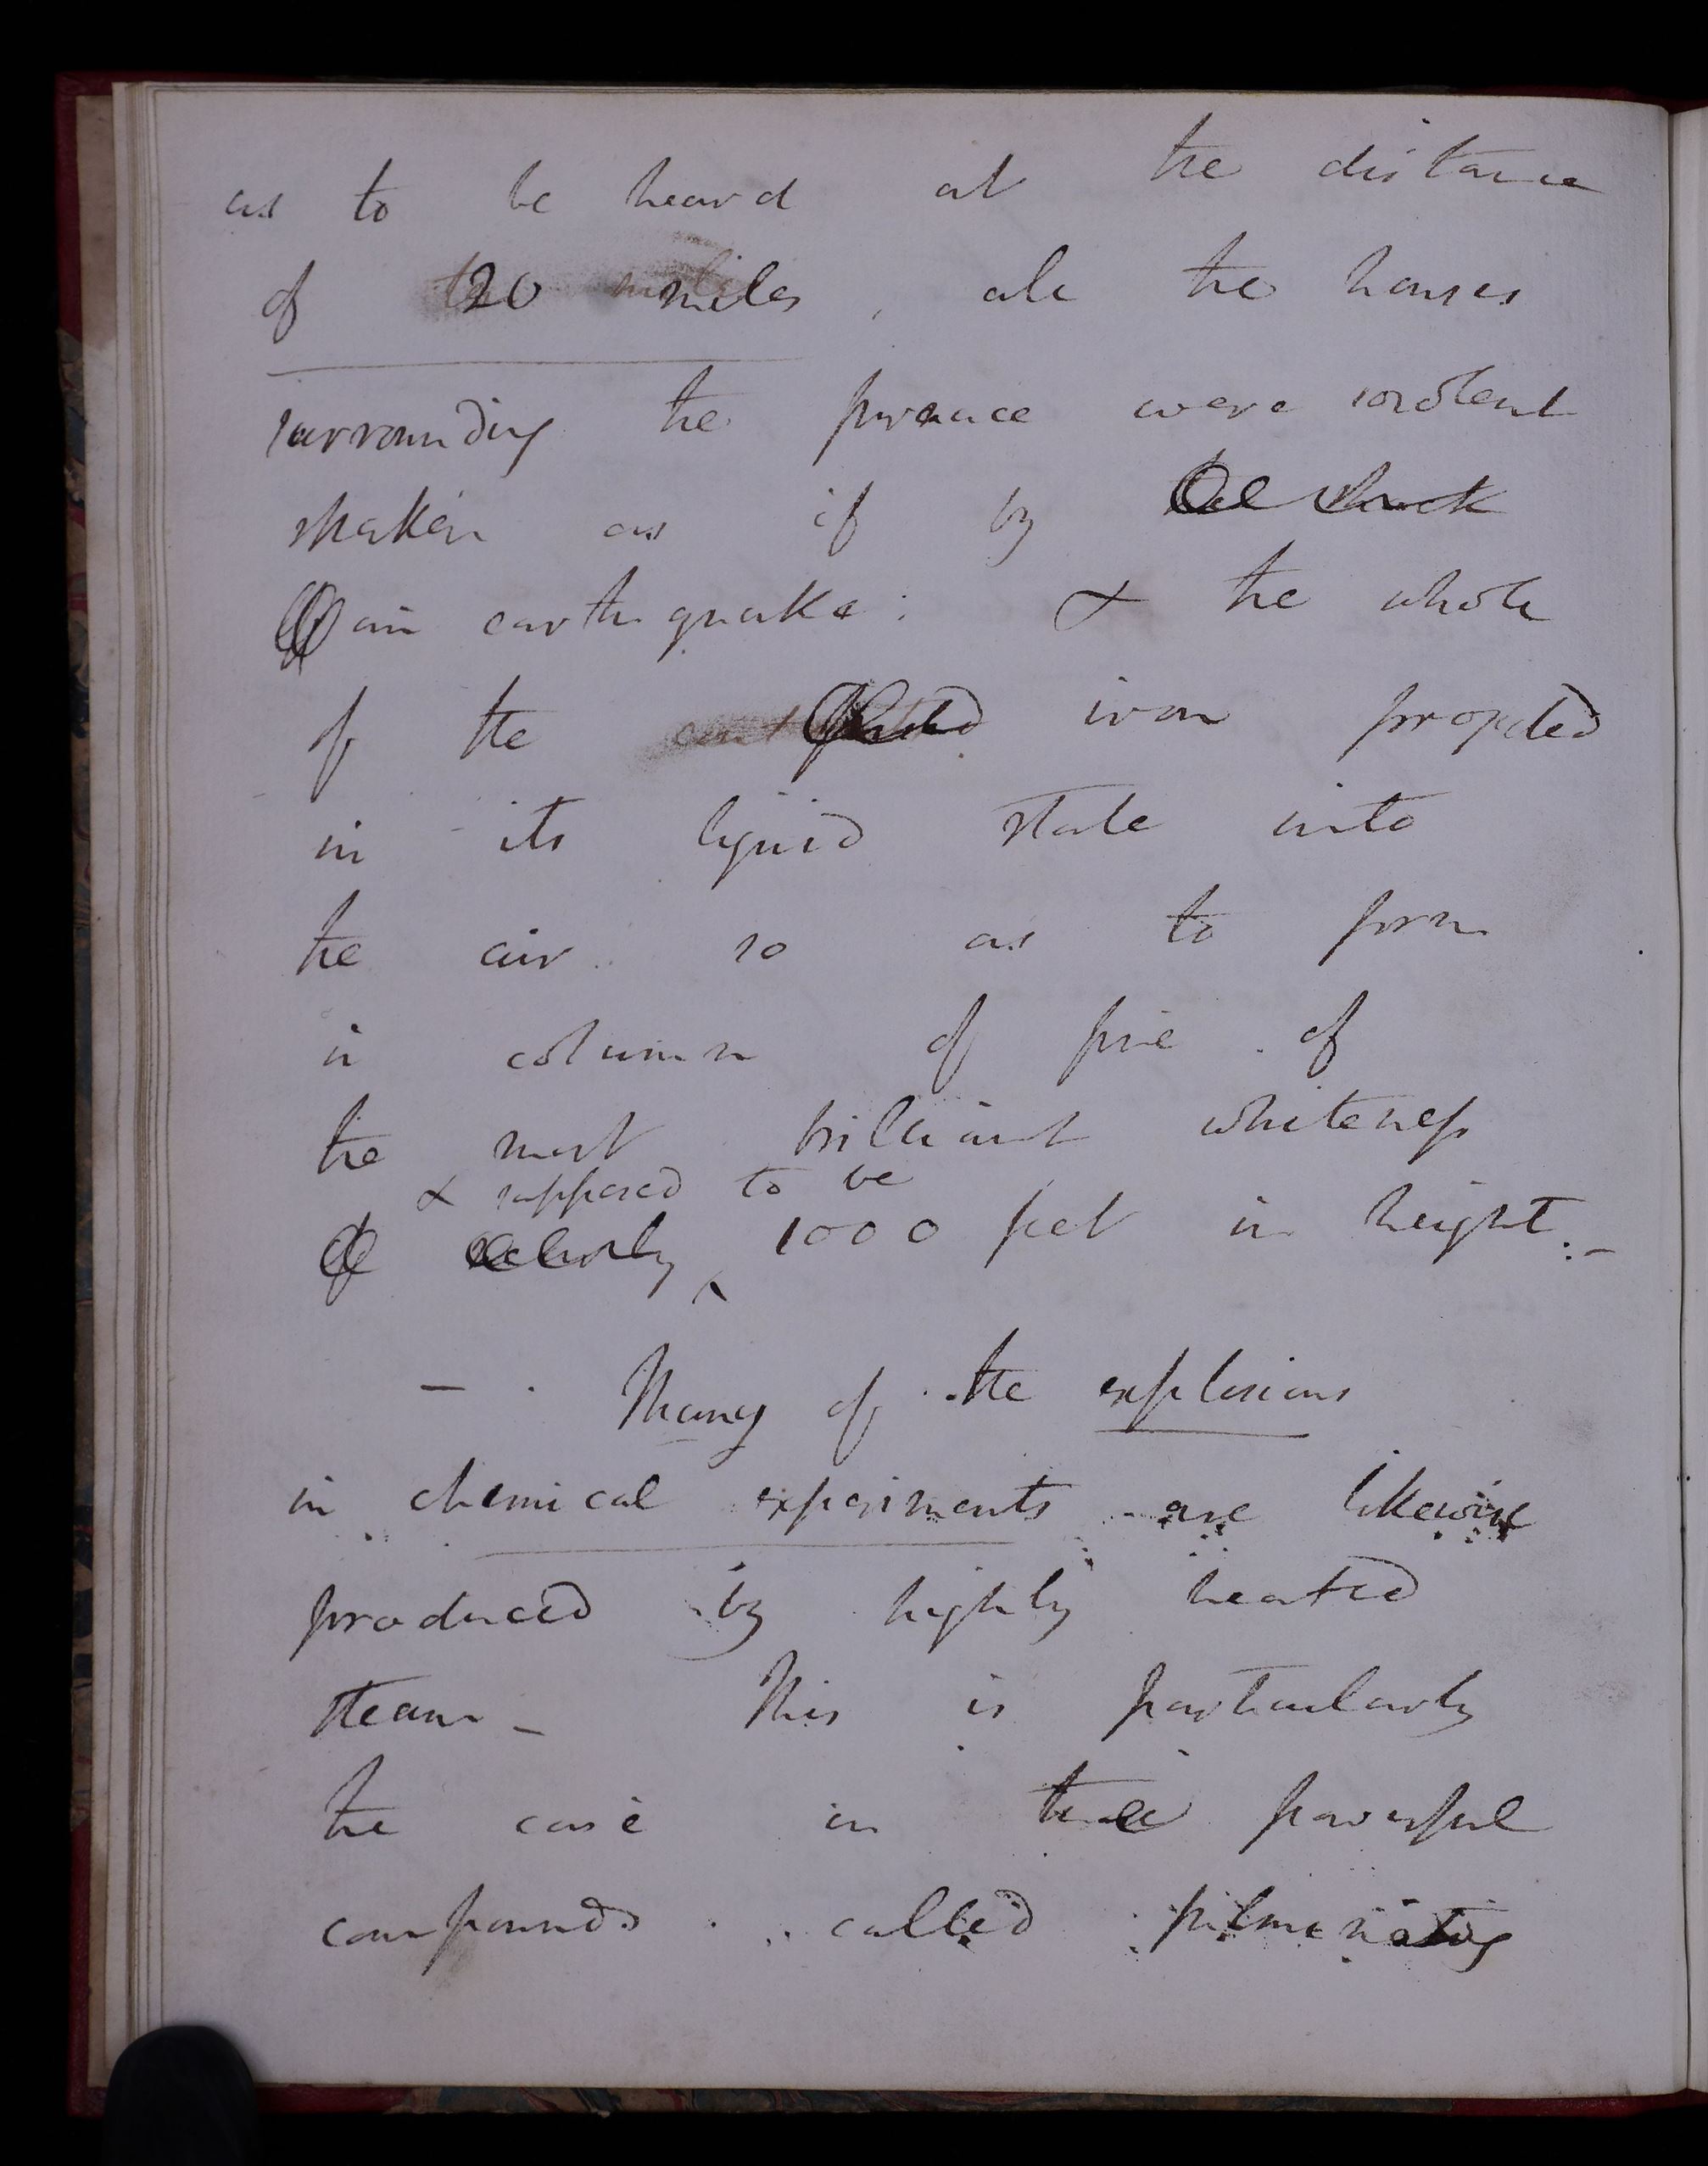 as to be heard at the distance
of 20 miles, all the houses
surrounding the furnace were violent
shaken as if by the shock
of an earthquake: & the whole
of the iron projected
in its liquid state into
the air so as to form
a column of fire of
the most brilliant whiteness
& supposed to be
of nearly 1000 feet in height.-
- Many of the explosions
in chemical experiments are likewise
produced by highly heated
steam - This is particularly
the case in those powerful
compounds called fulminating